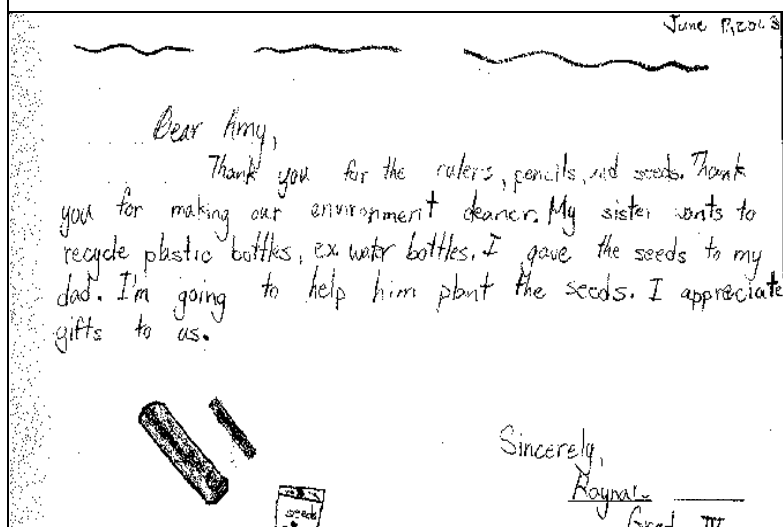 June
Dear Amy,
Thank you for the rulers, pencils, and seeds. Thank
you for making our environment cleaner. My sister wants to
recycle plastic bottles, ex. water bottles. I gave the seeds to my
dad. I'm going to help him plant the seeds. I appreciate
gifts to us.
Sincerely,
seeds